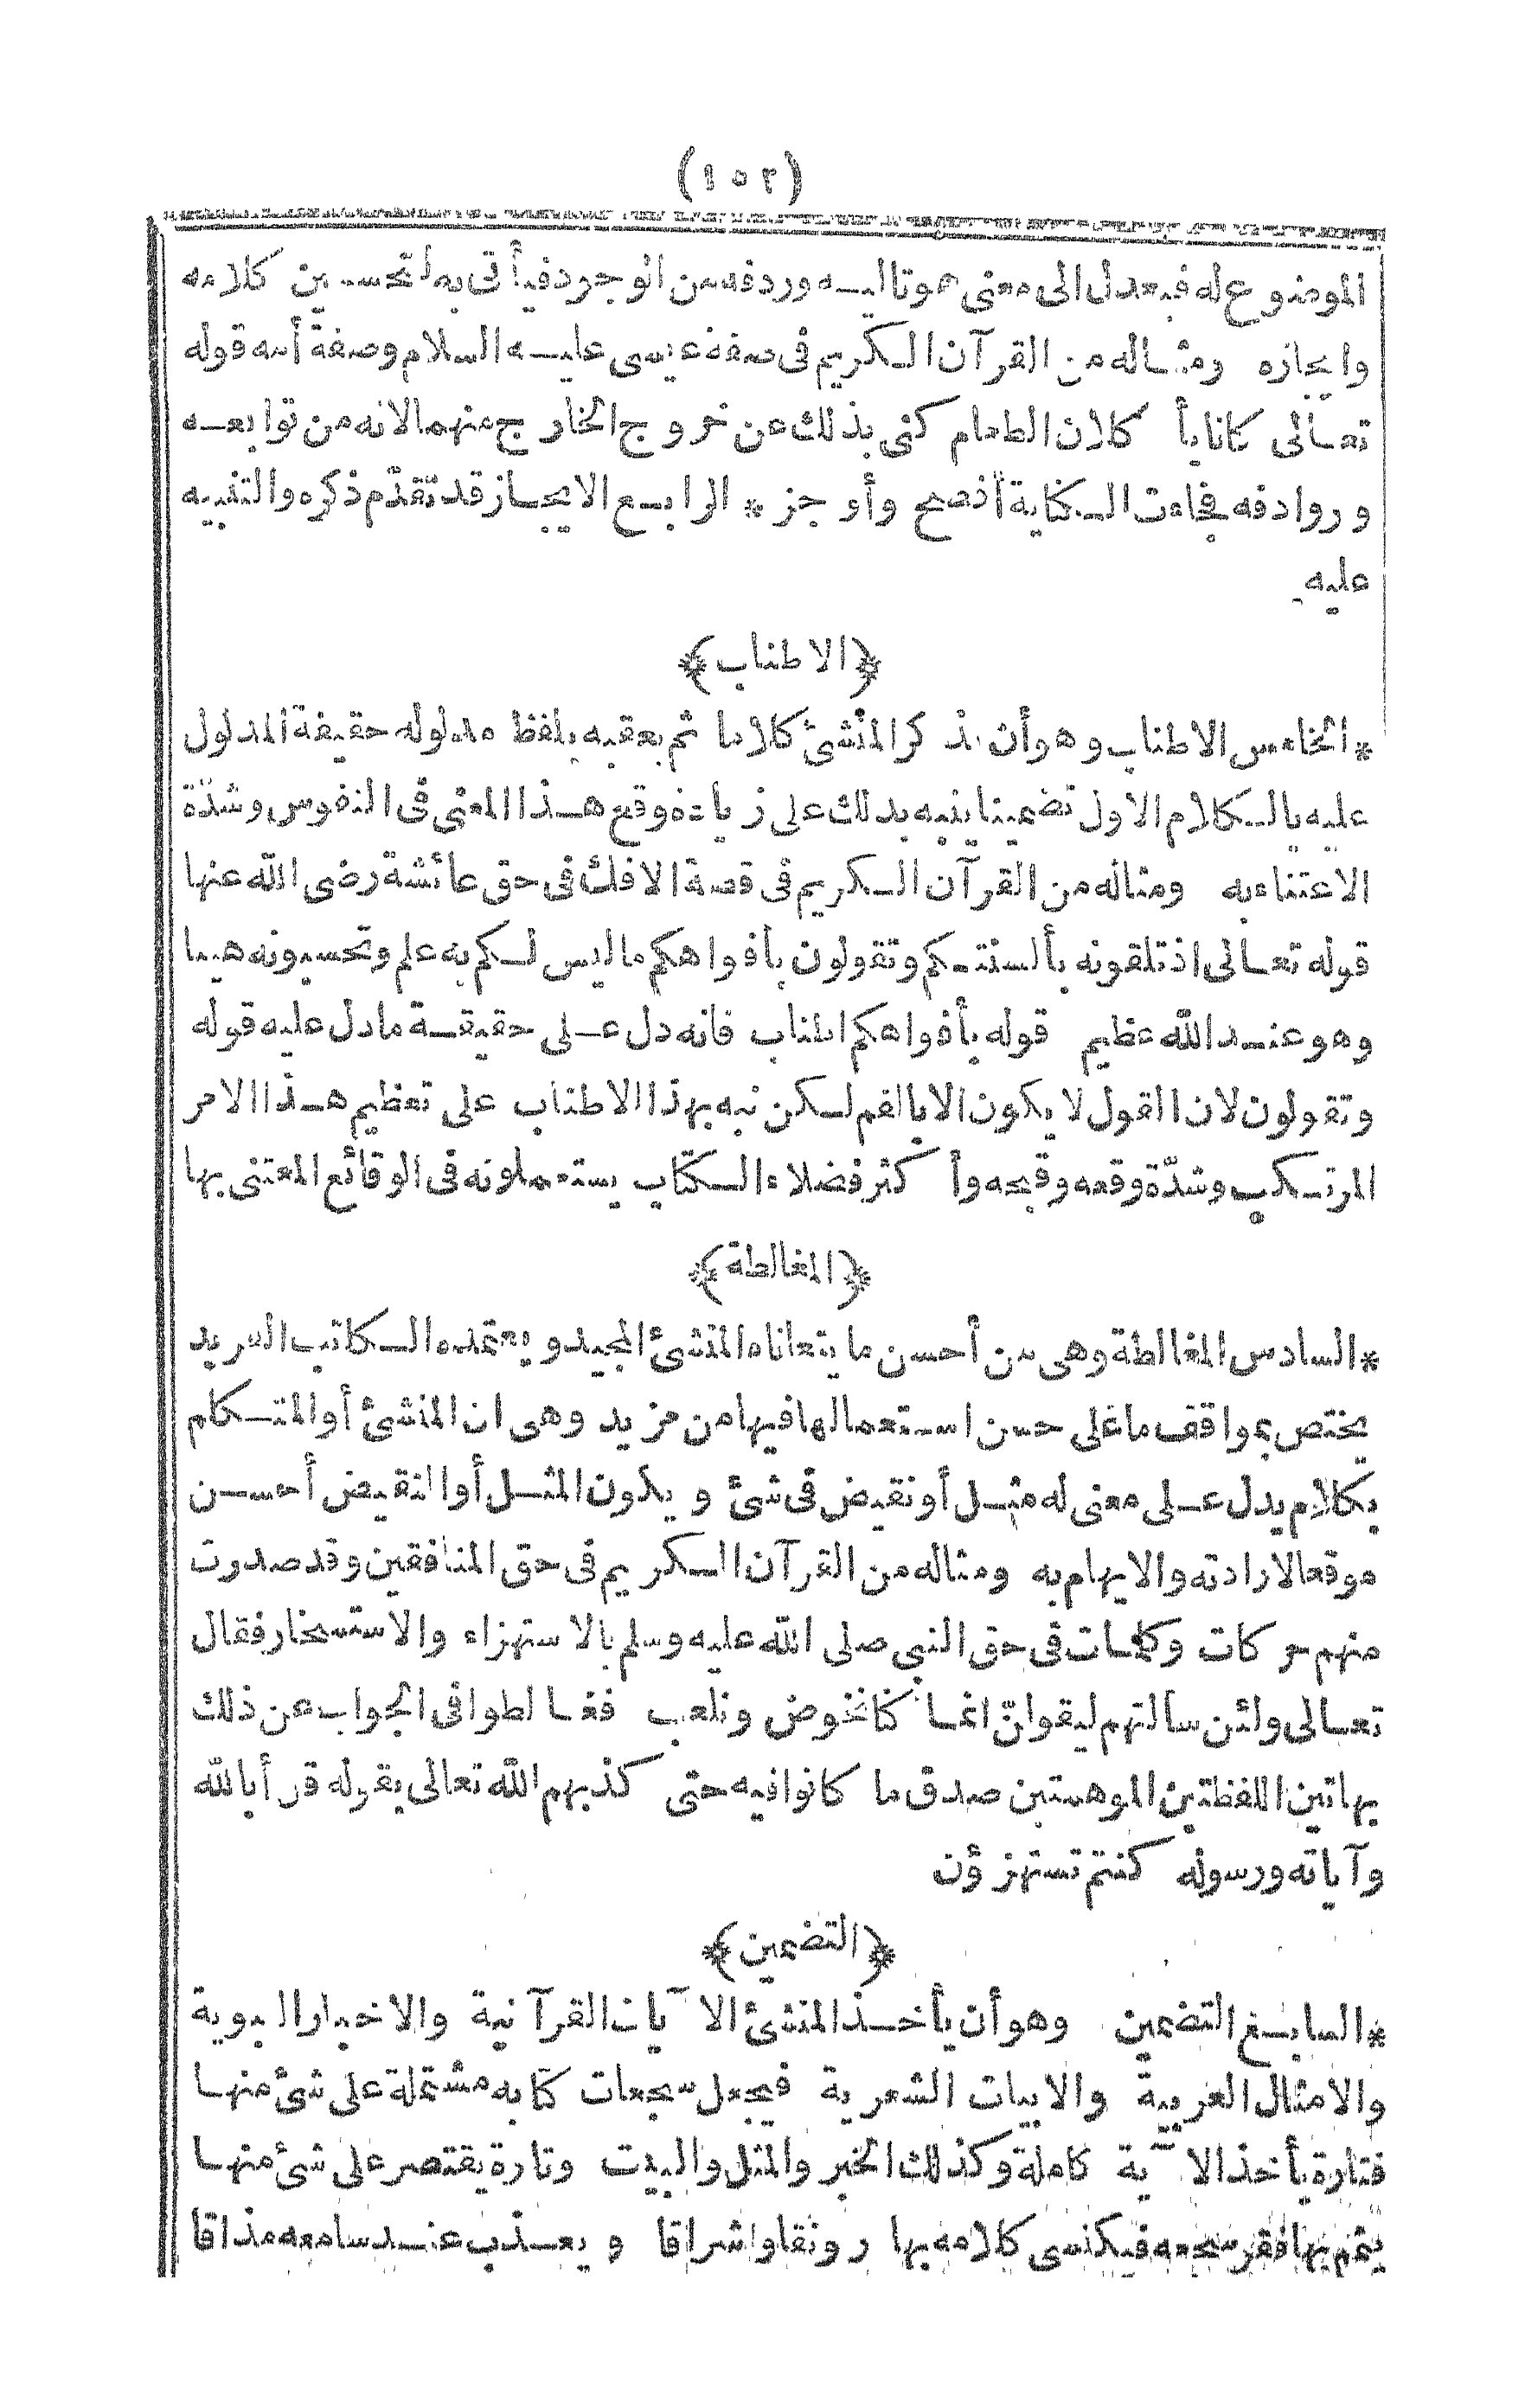 (١٥٢)
الموضوع له فيعدل الى معنى هو تاليه وردفه من الوجود فيأتى به لتحسين كلامه
وايجازه ومثاله من القرآن الكريم فى صفة عيسى عليه السلام وصفة أمه قوله
تعالى كانا يأكلان الطعام كنى بذلك عن خروج الخارج منهما لانه من توابعه
وروادفه فجاءت الكناية أفصح وأوجز * الرابع الايجاز قد تقدّم ذكره والتنبيه
عليه
﴿الاطناب﴾
* الخامس الاطناب وهو أن يذكر المنشئ كلاما ثم يعقبه بلفظ مدلوله حقيقة المدلول
عليه بالكلام الاول تضمينا ينبه بذلك على زيادة وقع هذا المعنى فى النفوس وشدّة
الاعتناء به ومثاله من القرآن الكريم فى قصة الافك فى حق عائشة رضى الله عنها
قوله تعالى اذ تلقونه بألسنتكم وتقولون بأفواهكم ما ليس لكم به علم وتحسبونه هينا
وهو عند الله عظيم قوله بأفواهكم اطناب فانه دل على حقيقة ما دل عليه قوله
وتقولون لان القول لا يكون الا بالفم لكن نبه بهذا الاطناب على تعظيم هذا الامر
المرتكب وشدّة وقعه وقبحه وأكثر فضلاء الكتاب يستعملونه فى الوقائع المعتنى بها
﴿المغالطة﴾
* السادس المغالطة وهى من أحسن ما يتعاناه المنشئ المجيد ويعتمده الكاتب المريد
يختص بمواقف ما على حسن استعمالها فيها من مزيد وهى ان المنشئ أو المتكلم
بكلام يدل على معنى له مثل أو نقيض فى شئ ويكون المثل أو النقيض أحسن
موقعا لارادته والايهام به ومثاله من القرآن الكريم فى حق المنافقين وقد صدرت
منهم حركات وكلمات فى حق النبى صلى الله عليه وسلم بالاستهزاء والاستسخار فقال
تعالى ولئن سألتهم ليقولنّ انما كنا نخوض ونلعب فغالطوا فى الجواب عن ذلك
بهاتين اللفظتين الموهمتين صدق ما كانوا فيه حتى كذبهم الله تعالى بقوله قل أبالله
وآياته ورسوله كنتم تستهزؤن
﴿التضمين﴾
* السابع التضمين وهو أن يأخذ المنشئ الآيات القرآنية والاخبار النبوية
والامثال العربية والابيات الشعرية فيجعل سجعات كتابه مشتملة على شئ منها
فتارة يأخذ الآية كاملة وكذلك الخبر والمثل والبيت وتارة يقتصر على شئ منها
يتمم بها فقر سجعه فيكتسى كلامه بها رونقا واشراقا ويعذب عند سامعه مذاقا